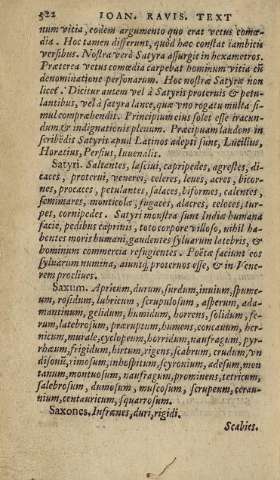 522 IOAN. RAVIS. TEXT
tum vitia, eodem argumento quo erat vetus comœ-
dia. Hoc tamen differunt, quòd hæc constat iambicis
versibus. Nostra verò Satyra assurgit in hexametros.
Præterea vetus comœdia carpebat hominum vitia cū
denominatione personarum. Hoc nostræ Satyræ non
licet. Dicitur autem vel à Satyris proteruis & petu-
lantibus, vel à satyra lance, quæ vno rogatu multa si-
mul comprehendit. Principium eius solet esse iracun-
dum & indignationis plenum. Præcipuam laudem in
scribēdis Satyris apud Latinos adepti sunt, Lucilius,
Horatius, Persius, Iuuenalis.
Satyri. Saltantes, lasciui, capripedes, agrestes, di-
caces, proterui, veneres, celeres, leues, acres, bicor-
nes, procaces, petulantes, salaces, biformes, calentes,
semimares, monticolæ, fugaces, alacres, veloces, tur-
pes, cornipedes. Satyri monstra sunt Indiæ humana
facie, pedibus caprinis, toto corpore villoso, nihil ha-
bentes moris humani, gaudentes syluarum latebris, &
hominum commercia refugientes. Poëtæ faciunt eos
syluarum numina, aiuntq́; proteruos esse, & in Vene-
rem procliues.
Saxum. Apricum, durum, surdum, inuium, spume-
um, rosidum, lubricum, scrupulosum, asperum, ada-
mantinum, gelidum, humidum, horrens, solidum, fe-
rum, latebrosum, præruptum, humens, concauum, her-
nicum, murale, cyclopeum, horridum, naufragum, pyr-
rhæum, frigidum, hirtum, rigens, scabrum, crudum, vn
disonū, rimosum, inhospitum, scyronium, adesum, mon
tanum, montuosum, naufragum, prominens, tetricum,
salebrosum, dumosum, muscosum, scrupeum, cerau-
nium, centauricum, squarrosum.
Saxones. Infrænes, duri, rigidi.
Scabies.